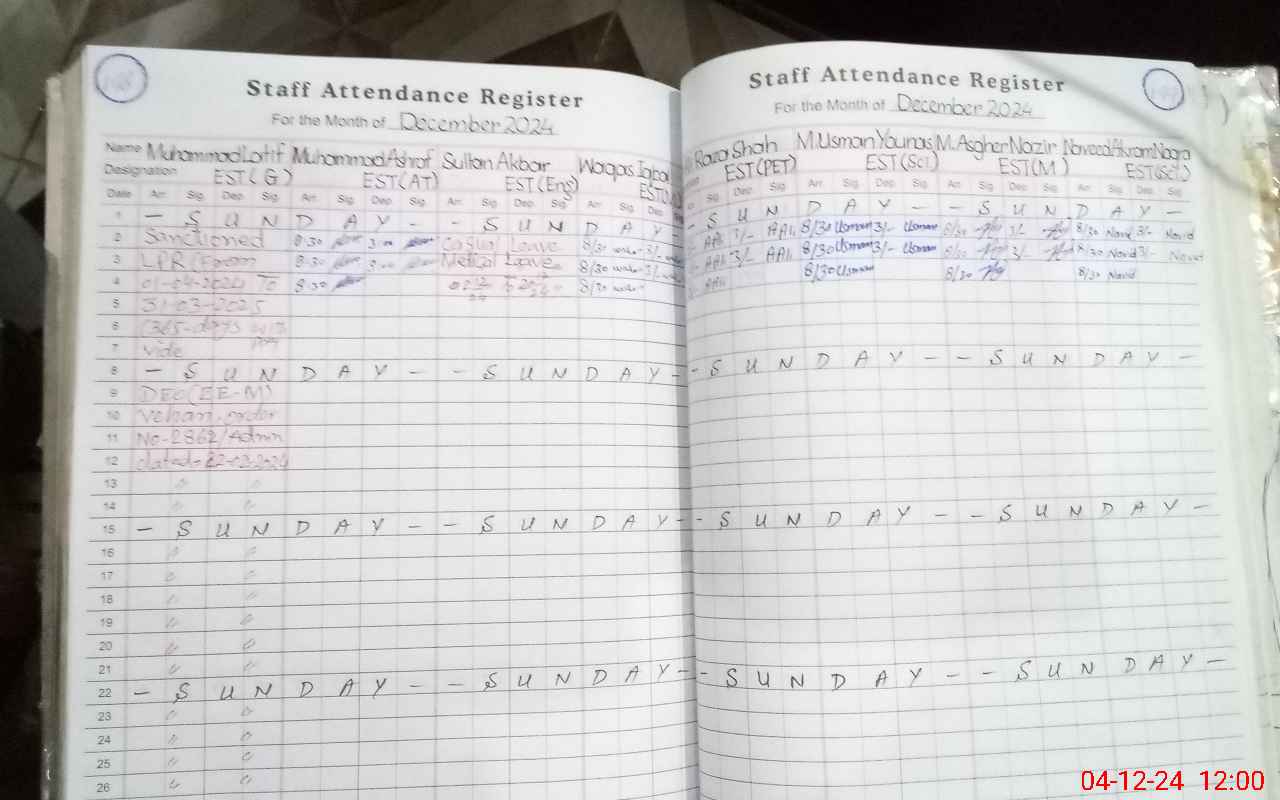 Staff Attendance Register
For the Month of December 2024
Name Muhammad Latif Muhammad Ashraf Sultan Akbar Waqas Iqbal
Designation EST(G) EST(AT) EST(Eng)
Date Arr. Sig. Dep. Sig. Arr. Sig. Dep. Sig. Arr. Sig. Dep. Sig. Arr. Sig. Dep.
1 - S U N D A Y - - S U N D A Y
2 Sanctioned 8:30 3:00 Casual Leave 8/30 3/-
3 LPR (From 8:30 3:00 Medical Leave 8/30 3/-
4 01-04-2024 To 8:30 To 8/30
5 31-03-2025
6 (365-days
7 vide
8 - S U N D A Y - - S U N D A Y -
9 DEO(EE-M)
10 Vehari order
11 No-2862/Admn
12 dated-22-02-2024
13 〃 〃
14 〃 〃
15 - S U N D A Y - - S U N D A Y -
16 〃 〃
17 〃 〃
18 〃 〃
19 〃 〃
20 〃 〃
21 〃 〃
22 - S U N D A Y - - S U N D A Y -
23 〃 〃
24 〃 〃
25 〃 〃
26 〃 〃
Staff Attendance Register
For the Month of December 2024
Raza Shah M.Usman Younas M.Asgher Nazir Naveed Akram Nagra
EST(PET) EST(Sci) EST(M) EST(Sci)
Sig. Dep. Sig. Arr. Sig. Dep. Sig. Arr. Sig. Dep. Sig. Arr. Sig. Dep. Sig.
- S U N D A Y - - S U N D A Y -
3/- 8/30 Usman 3/- Usman 8/30 3/- 8/30 Navid 3/- Navid
3/- 8/30 Usman 3/- Usman 8/30 3/- 8/30 Navid 3/- Navid
8/30 Usman 8/30 8/30 Navid
- S U N D A Y - - S U N D A Y -
- S U N D A Y - - S U N D A Y -
- S U N D A Y - - S U N D A Y -
04-12-24 12:00